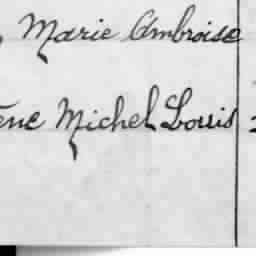 , Marie Ambroise
ène Michel Louis